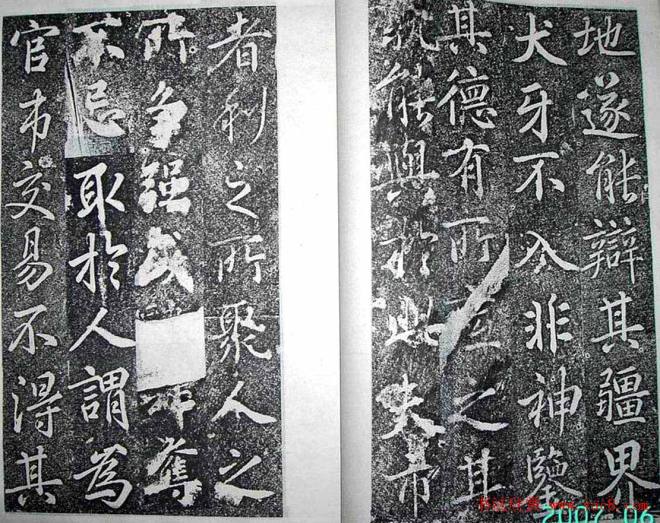 地遂能辯其疆界
犬牙不入非神鑒
其德有所之其
孰能與於此夫市
者利之所聚人之
所争强或奪
不忌取於人謂為
官市交易不得其
书法欣赏 www.yac8.com
2007.06